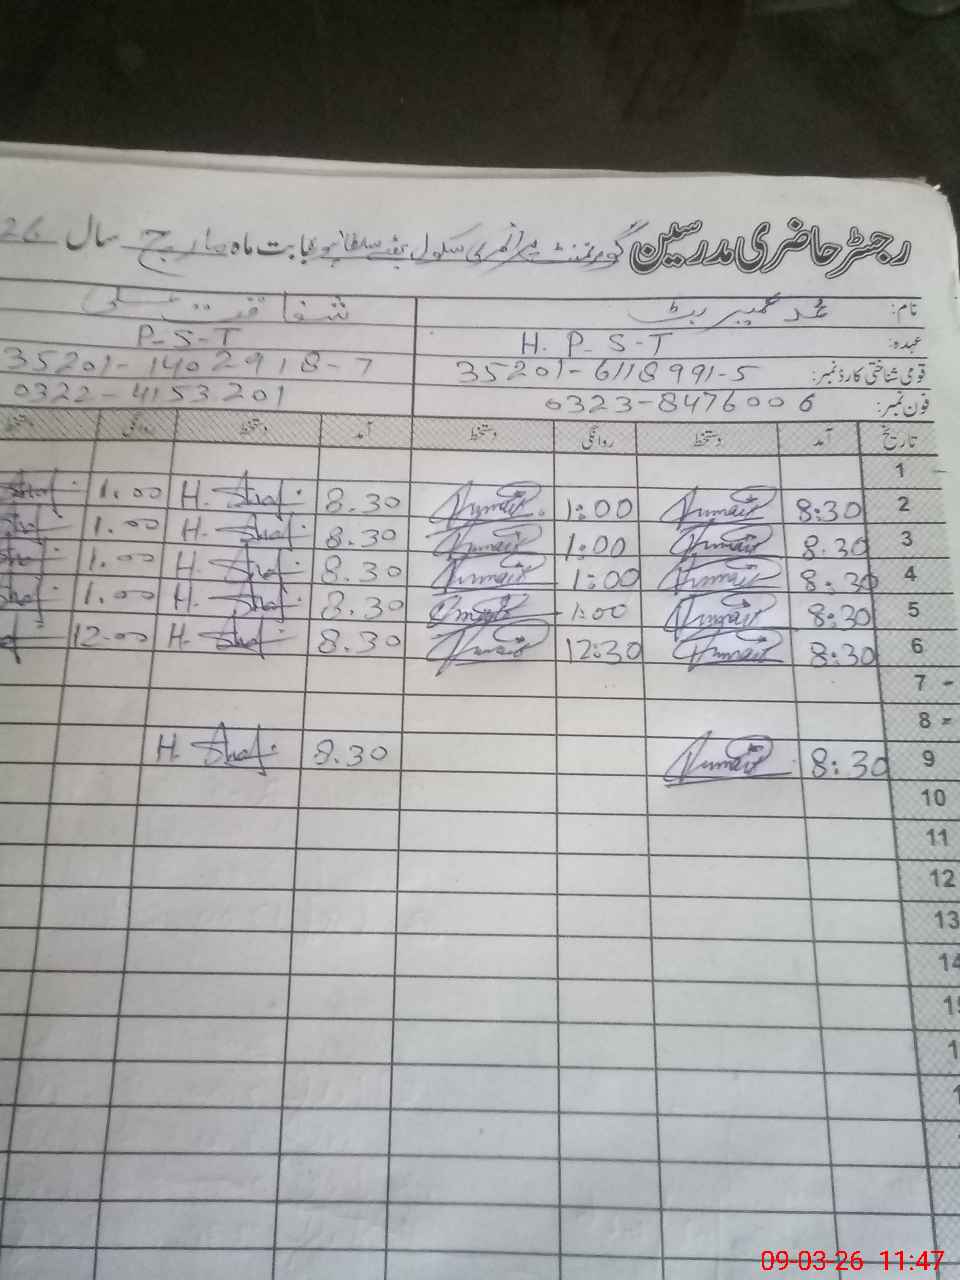 رجسٹر حاضری مدرسین گورنمنٹ پرائمری سکول بابت ماہ مارچ سال 26
نام: محمد عمیر بٹ شفاقت علی
عہدہ: H. P-S-T P-S-T
قومی شناختی کارڈ نمبر: 35201-6118991-5 35201-1402918-7
فون نمبر: 0323-8476006 0322-4153201
تاریخ آمد دستخط روانگی دستخط آمد دستخط روانگی دستخط
1
2 8:30 1:00 8.30 H. Shaf 1.00
3 8.30 1:00 8.30 H. Shaf 1.00
4 8:30 1:00 8.30 H. Shaf 1.00
5 8:30 1:00 8.30 H. Shaf 1.00
6 8:30 12:30 8.30 H. Shaf 12.00
7 -
8 =
9 8:30 8.30 H. Shaf
10
11
12
13
14
15
09-03-26 11:47